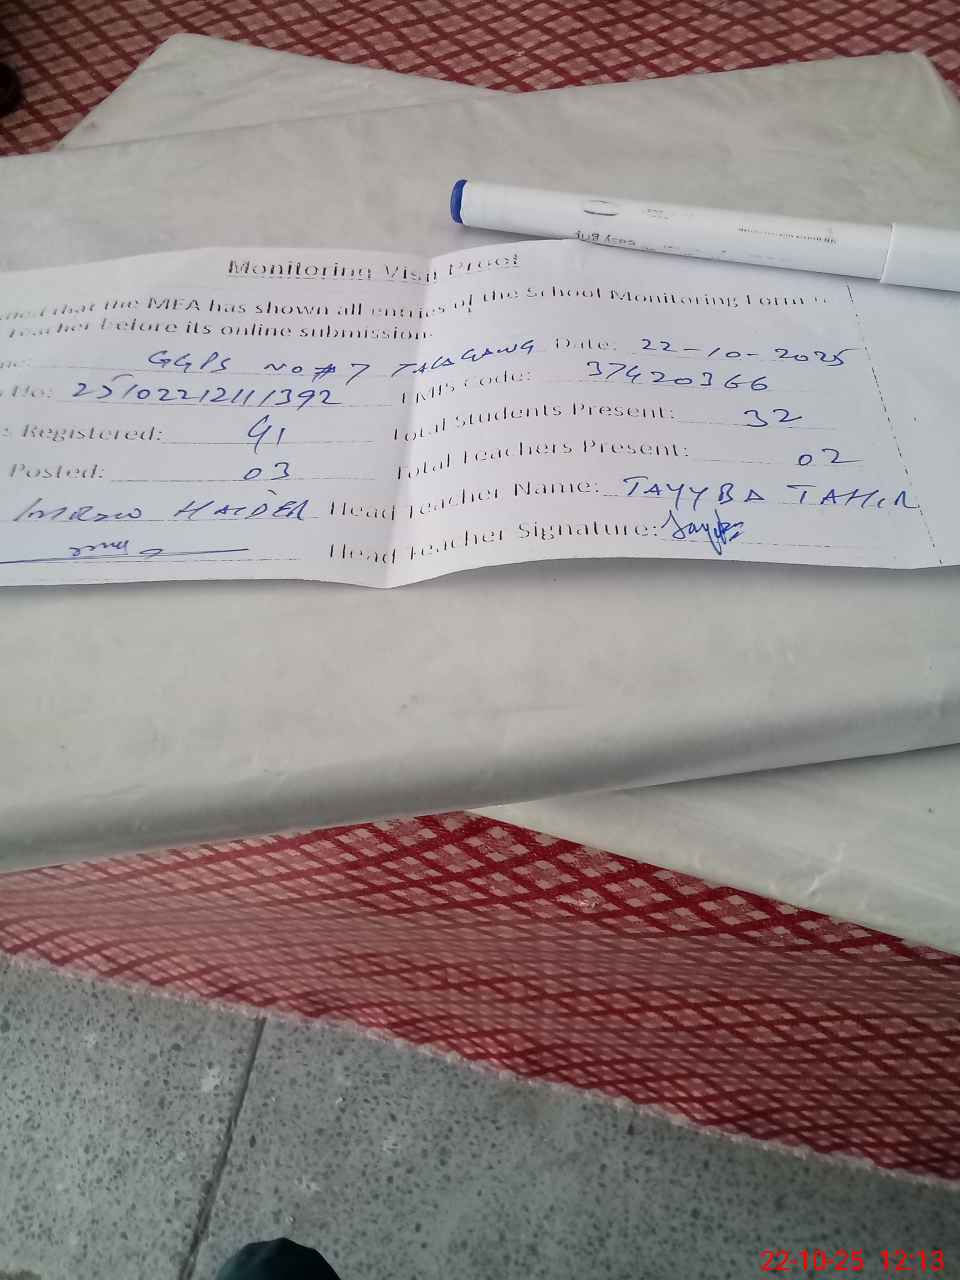 Monitoring Visit Proof
that the MEA has shown all entries of the School Monitoring Form
Teacher before its online submission.
GGPS No # 7 TALAGANG Date: 22-10-2025
No: 2510221211392 EMIS Code: 37420366
Registered: 41 Total Students Present: 32
Posted: 03 Total Teachers Present: 02
HAIDER Head Teacher Name: TAYYBA TAHIR
Head Teacher Signature:
22-10-25 12:13